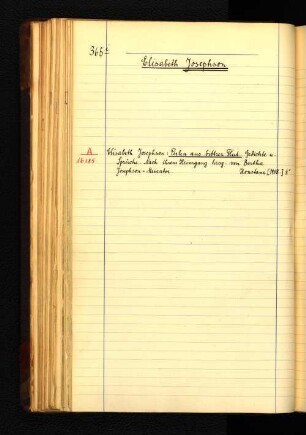 365a
Elisabeth Josephson
A
Elisabeth Josephson: Perlen aus bittrer Flut. Gedichte u.
Sprüche. Nach ihrem Heimgang hrsg. von Bertha
Josephson-Mercator. Konstanz [1908.] 8°